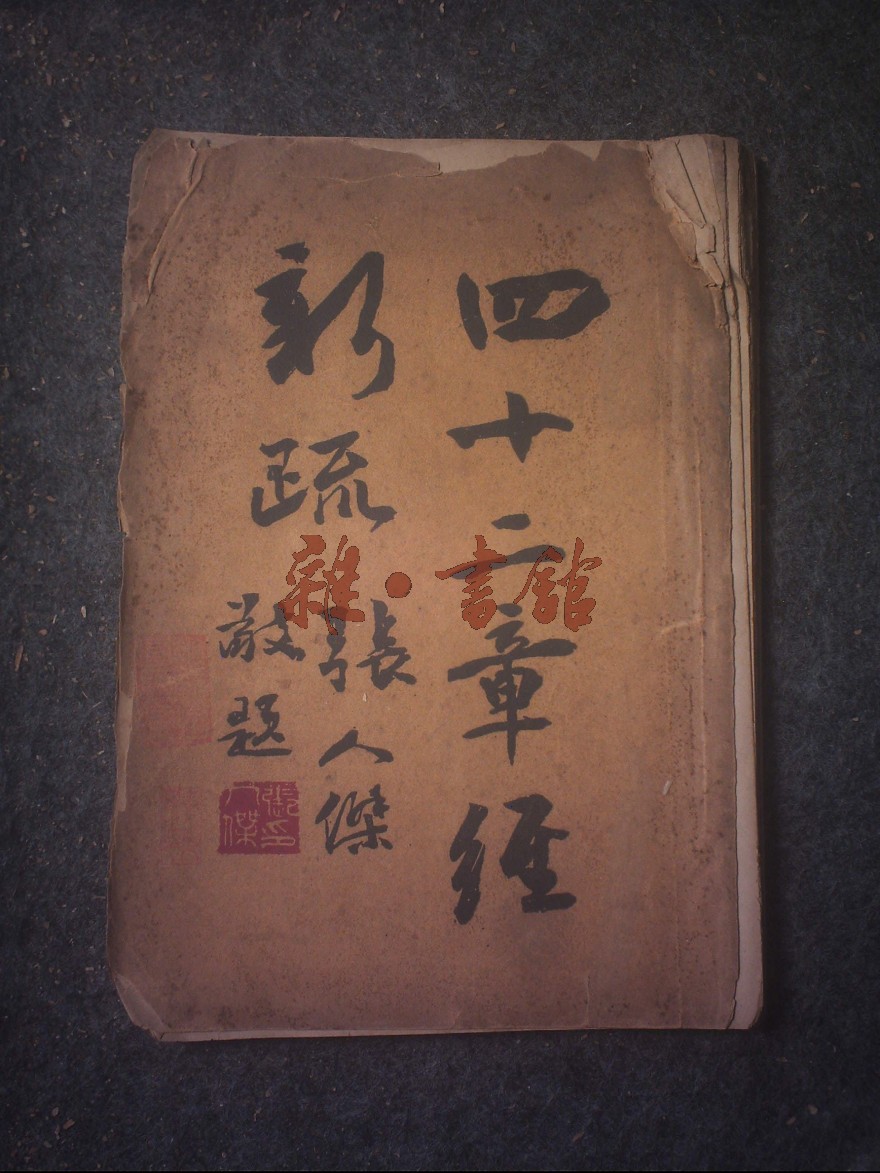 四十二章經
新疏
張人傑
敬題
張人傑印
雜·書館